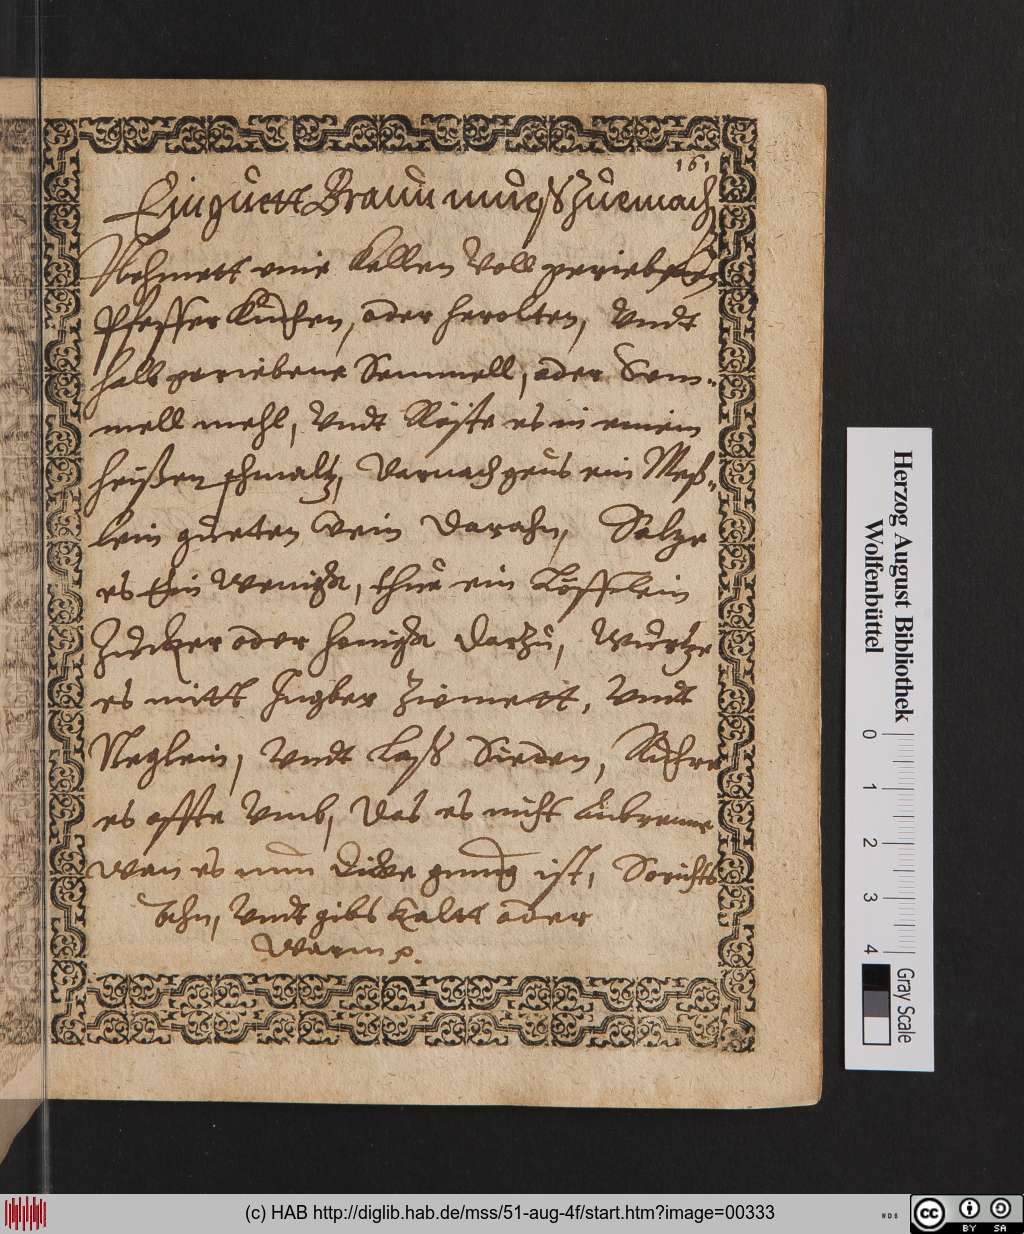 161
Ein guett Braun mueß Zuemach
Nehmett eine kellen Voll geriebe
Pfeffer Kuchen, oder herolten, Vndt
halb geriebene Semmell, oder Sem-
mell mehl, Vndt Röste es in einem
heißen schmaltz, Darnach geus ein Meß-
lein guetten wein Darahn, Saltze
es Ein wenigk, thue ein Löfflein
Zucker oder honigk Darzu, Wurtze
es mitt Jngber Zimmett, Vndt
Neglein, Vndt laß Sieden, Ruhre
es offte Vmb, Das es nicht Anbrenne
Wan es nun Dicke gnung ist, So richts
Ahn, Vndt gibs kaltt oder
Warm
Herzog August Bibliothek
Wolfenbüttel
0 1 2 3 4
Gray Scale
(c) HAB http://diglib.hab.de/mss/51-aug-4f/start.htm?image=00333
WDB
cc BY SA